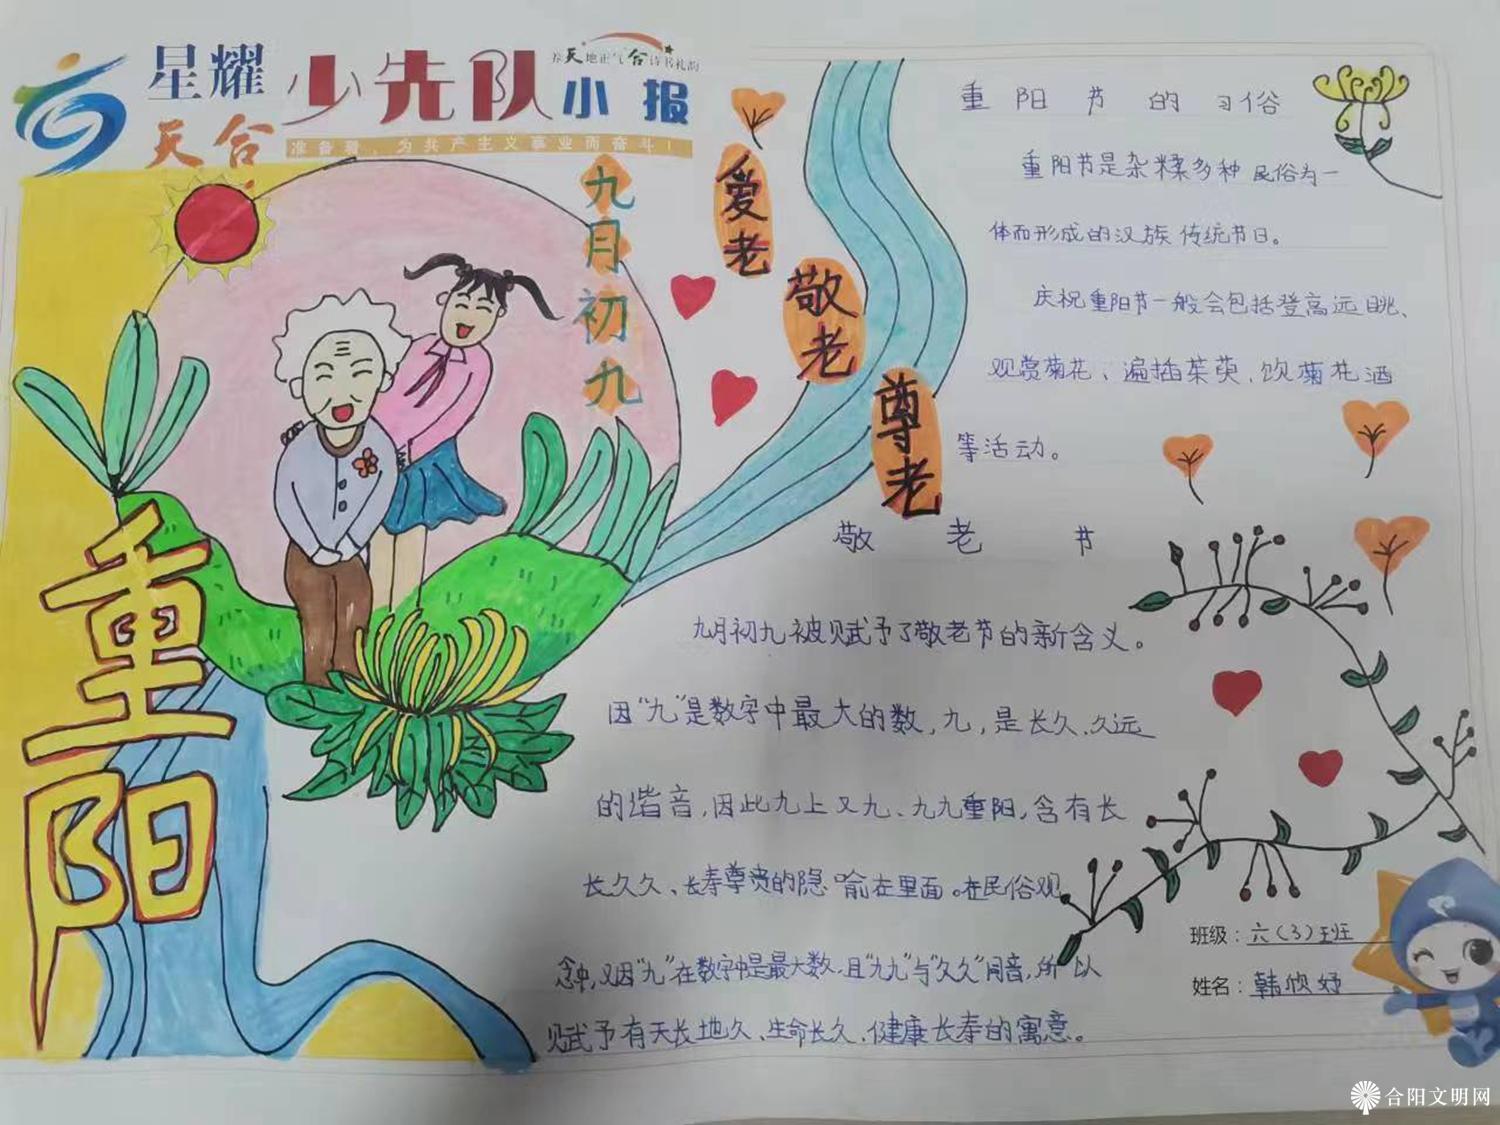 星耀
天合
少先队小报
养天地正气 合诗书礼韵
准备着,为共产主义事业而奋斗!
九月初九
爱老
敬老
尊老
重阳
重阳节的习俗
重阳节是杂糅多种民俗为一
体而形成的汉族传统节日。
庆祝重阳节一般会包括登高远眺、
观赏菊花、遍插茱萸、饮菊花酒
等活动。
敬老节
九月初九被赋予了敬老节的新含义。
因“九”是数字中最大的数,九,是长久、久远
的谐音,因此九上又九、九九重阳,含有长
长久久、长寿尊贵的隐喻在里面。在民俗观
念中,又因“九”在数字中是最大数,且“九九”与“久久”同音,所以
赋予有天长地久、生命长久、健康长寿的寓意。
班级:六(3)班
姓名:韩欣妤
合阳文明网